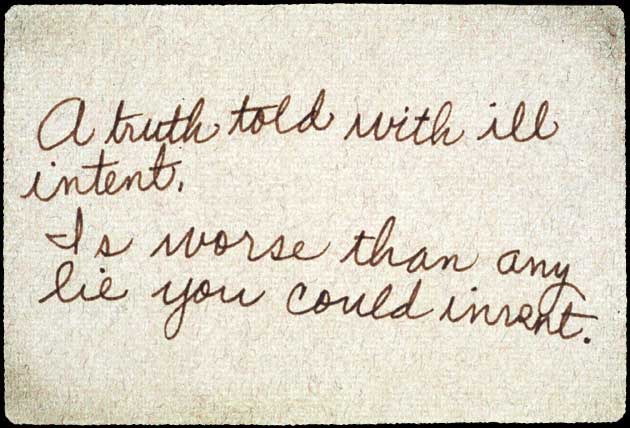 A truth told with ill
intent.
Is worse than any
lie you could invent.